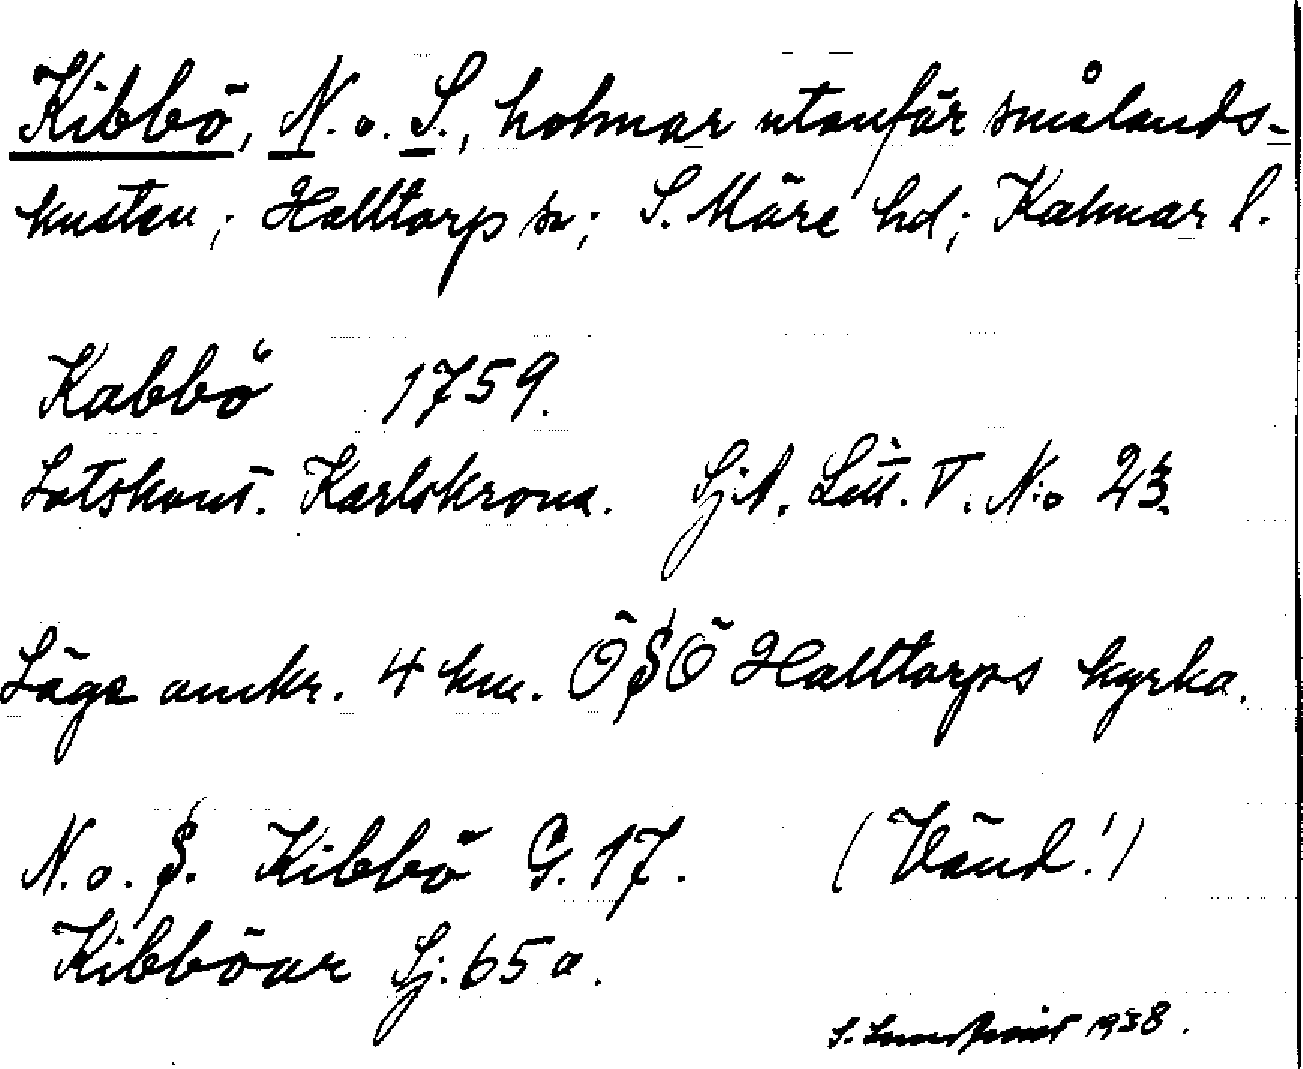 Kibbö, N. o. S., holmar utanför smålands-
kusten; Halltorp sn; S. Möre hd; Kalmar l.
Kabbö 1759.
Lotskont. Karlskrona. Sjö. Litt. V. N:o 23.
Läge omkr. 4 km. ÖSÖ Halltorps kyrka.
N. o. S. Kibbö G. 17. (Vänd!)
Kibböar Sj. 65 a.
1938.